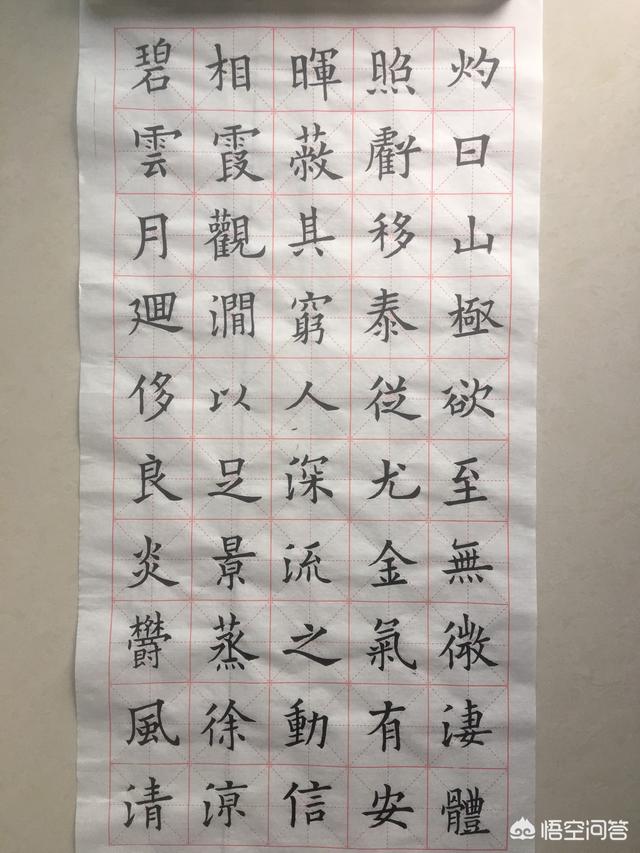 碧相暉照灼
雲霞蔽虧日
月觀其移山
廻澗窮泰極
侈以人從欲
良足深尤至
炎景流金無
鬱蒸之氣微
風徐動有淒
清涼信安體
悟空问答